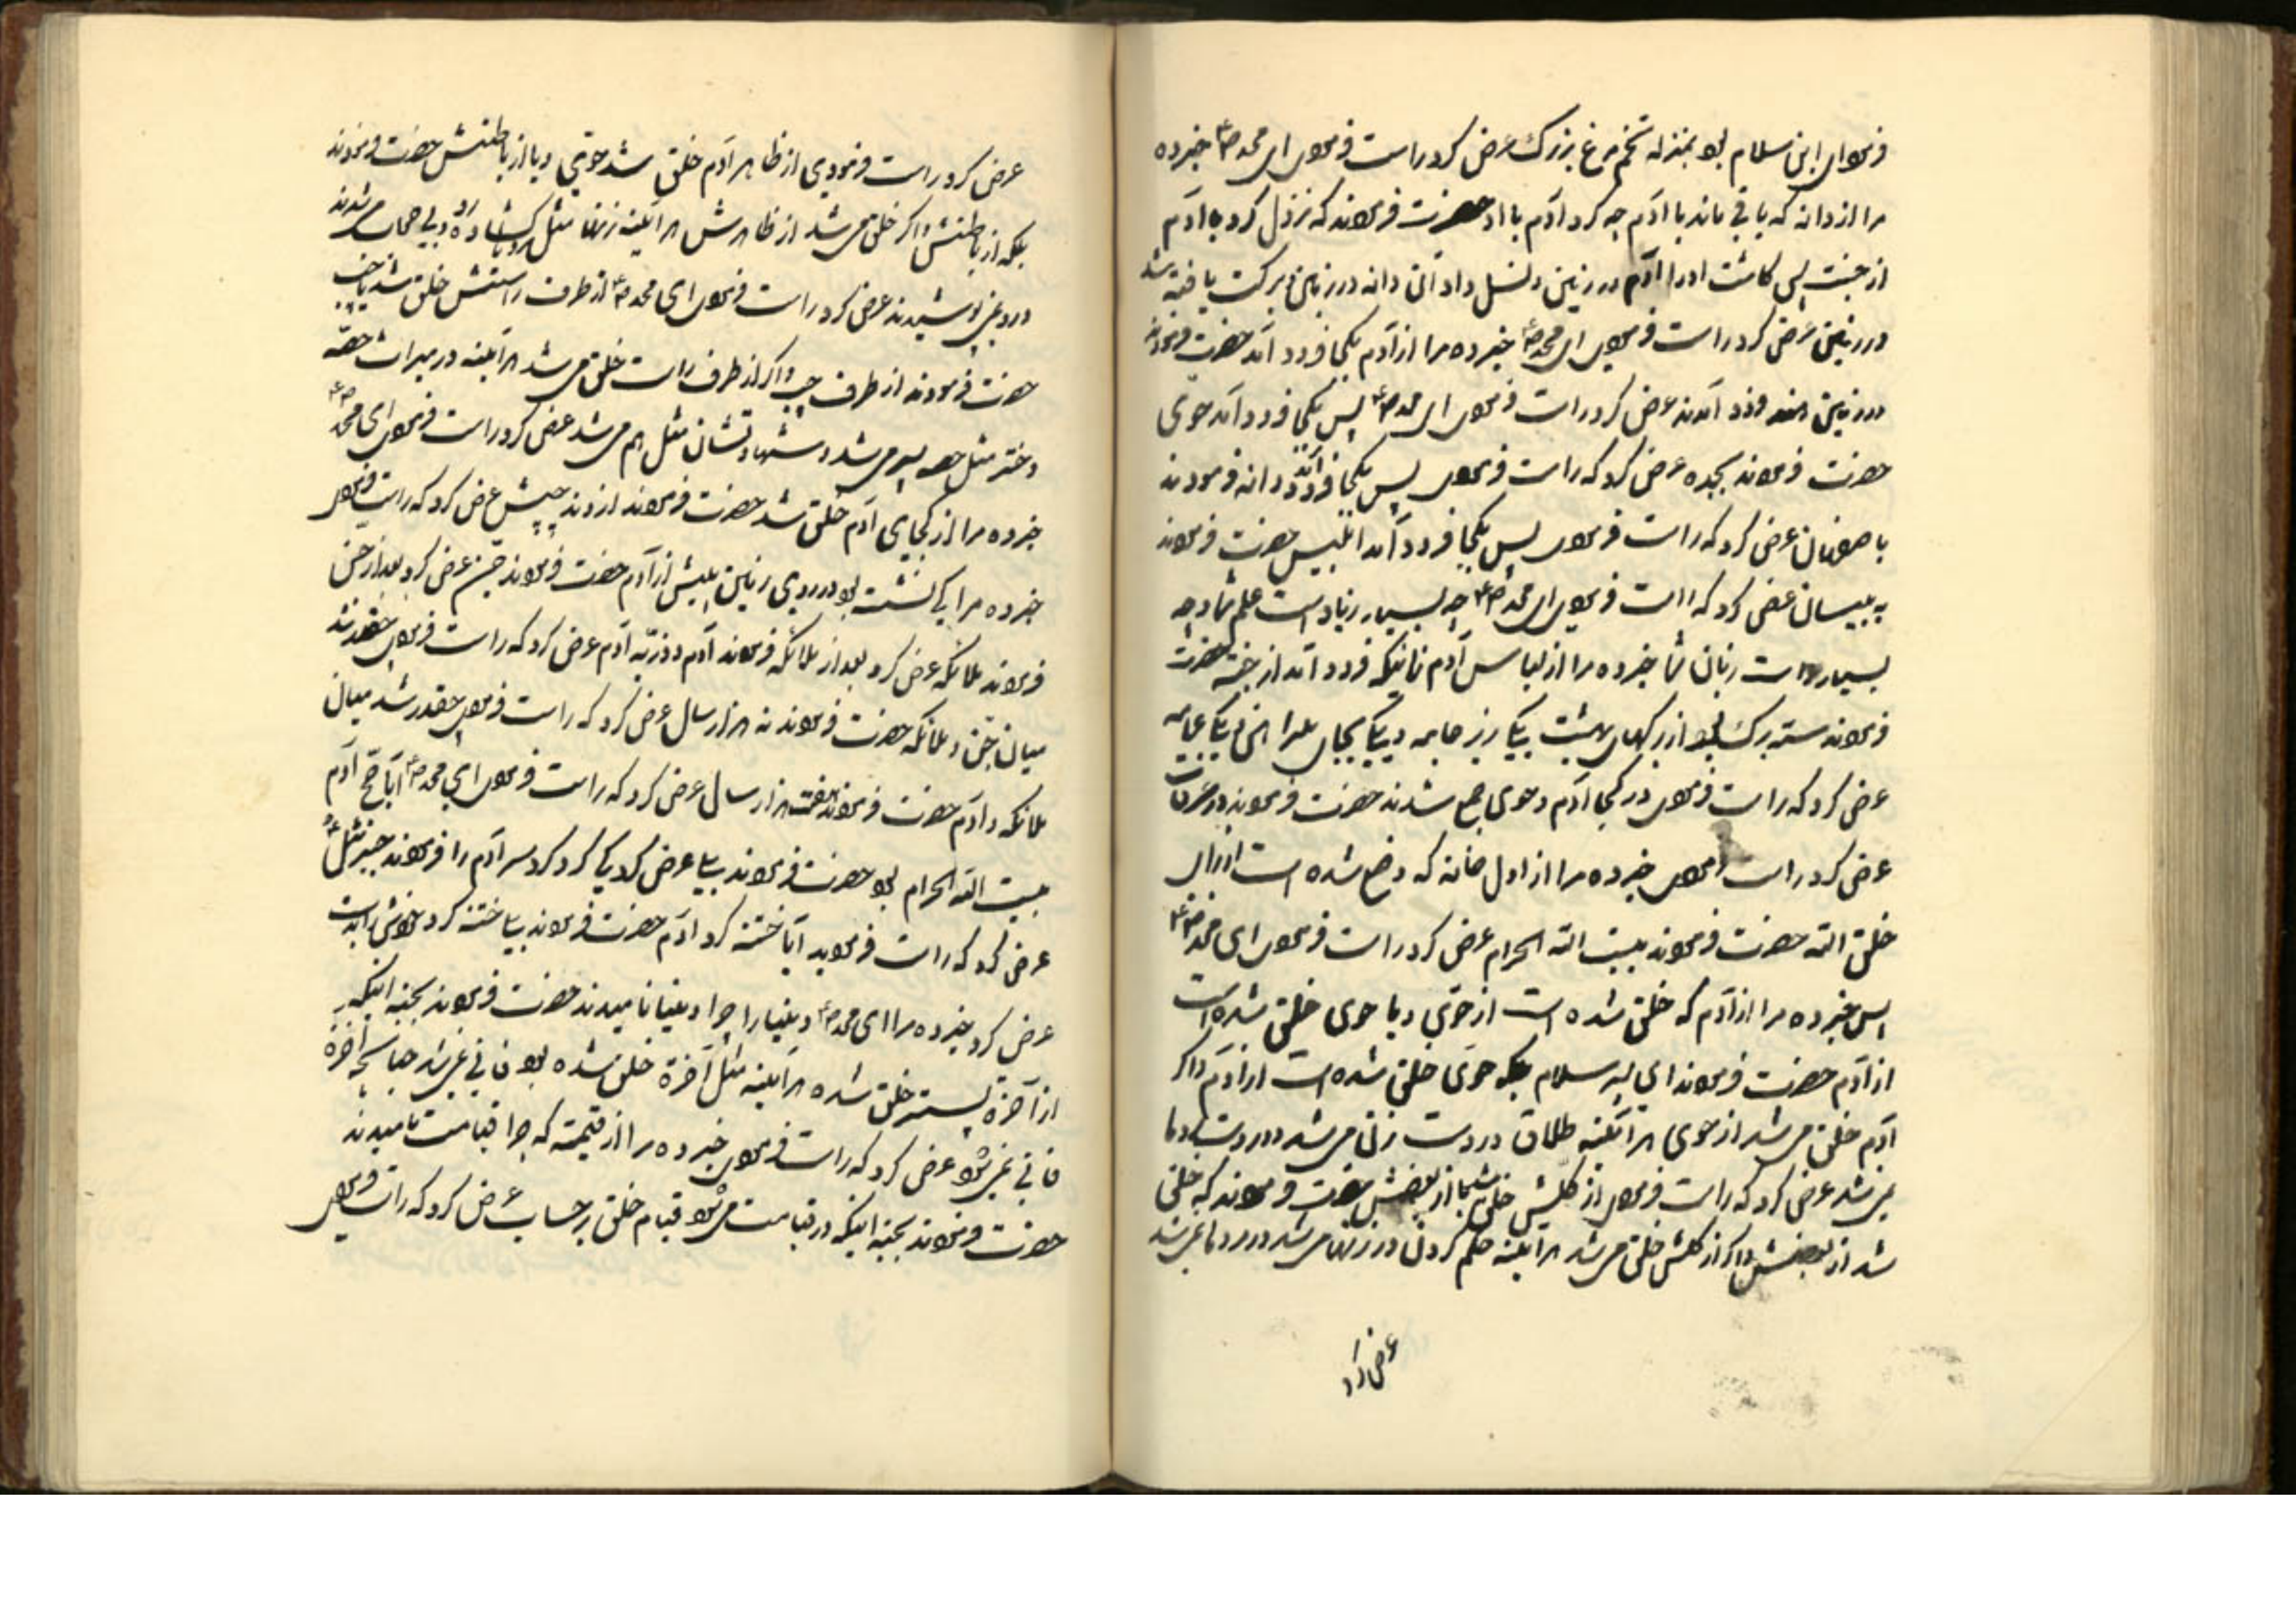 فرمود ای ابن سلام بود بمنزله تخم مرغ بزرک عرض کرد راست فرمودی ای محمد ص ع خبر ده
مرا از دانه که باقی ماند با آدم چه کرد آدم با او حضرت فرمودند که نزول کرد با آدم
از جنت پس کاشت او را آدم در زمین و نسل داد آن دانه در زمین و برکت یافته شد
در زمین عرض کرد راست فرمودی ای محمد ص ع خبر ده مرا از آدم بکجا فرود آمد حضرت فرمودند
در زمین هند فرود آمدند عرض کرد راست فرمودی ای محمد ص ع پس بکجا فرود آمد حوی
حضرت فرمودند بجده عرض کرد که راست فرمودی پس بکجا فرود آمد فرمودند
باصفهان عرض کرد که راست فرمودی پس بکجا فرود آمد ابلیس حضرت فرمودند
به بیسان عرض کرد که راست فرمودی ای محمد ص ع چه بسیار زیاد است علم شما و چه
بسیار است زبان شما خبر ده مرا از لباس آدم زمانیکه فرود آمد از جنت حضرت
فرمودند سه برک بود از برکهای بهشت بیکی
عرض کرد که راست فرمودی در کجا آدم و حوی جمع شدند حضرت فرمودند در عرفات
عرض کرد راست فرمودی خبر ده مرا از اول خانه که وضع شده است از برای
خلق الله حضرت فرمودند بیت الله الحرام عرض کرد راست فرمودی ای محمد ص ع
پس خبر ده مرا از آدم که خلق شده است از حوی و یا حوی خلق شده است
از آدم حضرت فرمودند ای پسر سلام بلکه حوی خلق شده است از آدم و اکر
آدم خلق می شد از حوی هر آینه طلاق در دست زنان می شد و در دست مردها
نمی شد عرض کرد که راست فرمودی از کلش خلق شد یا از بعضش حضرت فرمودند که خلق
شد از بعضش و اکر از کلش خلق می شد هر آینه حکم کردن در زنها می شد و در مردها نمی شد
عرض کرد
عرض کرد راست فرمودی از ظاهر آدم خلق شد حوی و یا از باطنش حضرت فرمودند
بلکه از باطنش و اکر خلق می شد از ظاهرش هر آینه زنها مثل مردها کشاده رو و بی حجاب می شدند
و رو نمی پوشیدند عرض کرد راست فرمودی ای محمد ص ع از طرف راستش خلق شد یا چپ
حضرت فرمودند از طرف چپ و اکر از طرف راست خلق می شد هر آینه در میراث حصه
دختر مثل حصه پسر می شد و شهادتشان مثل هم می شد عرض کرد راست فرمودی ای محمد ص ع
خبر ده مرا از کجای آدم خلق شد حضرت فرمودند از دنده چپش عرض کرد که راست فرمودی
خبر ده مرا کی نشست بود در روی زمین پیش از آدم حضرت فرمودند جن عرض کرد بعد از جن
فرمودند ملائکه عرض کرد بعد از ملائکه فرمودند آدم و ذریه آدم عرض کرد که راست فرمودی چقدر شد
میان جن و ملائکه حضرت فرمودند نه هزار سال عرض کرد که راست فرمودی چقدر شد میان
ملائکه و آدم حضرت فرمودند هفت هزار سال عرض کرد که راست فرمودی ای محمد ص ع آیا حج آدم
بیت الله الحرام بود حضرت فرمودند بلی عرض کرد کی کرد سر آدم را فرمودند جبرئیل ع
عرض کرد که راست فرمودید آیا ختنه کرد آدم حضرت فرمودند بلی ختنه کرد خودش را بدست
عرض کرد خبر ده مرا ای محمد ص ع دنیا را چرا دنیا نامیدند حضرت فرمودند بجهة اینکه
از آخرة پستتر خلق شده هر آینه مثل آخرة خلق شده بود فانی نمی شد چنانچه آخرة
فانی نمی شود عرض کرد که راست فرمودی خبر ده مرا از قیمته که چرا قیامت نامیدند
حضرت فرمودند بجهة اینکه در قیامت می شود قیام خلق بر حساب عرض کرد که راست فرمودی